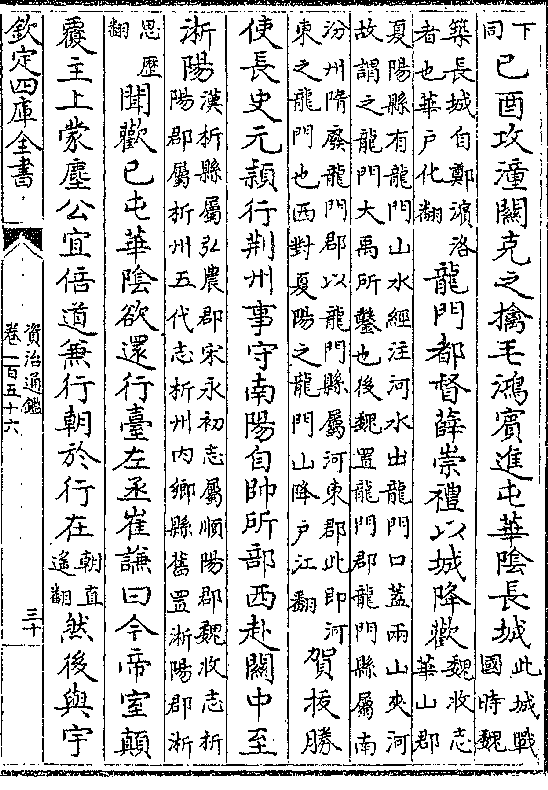 下同己酉攻潼關克之擒毛鴻賓進屯華陰長城此城戰國時魏
築長城自鄭濱洛者也華戶化翻龍門都督薛崇禮以城降歡魏收志華山郡
夏陽縣有龍門山水經注河水出龍門口蓋兩山夾河
故謂之龍門大禹所鑿也後魏置龍門郡龍門縣屬南
汾州隋廢龍門郡以龍門縣屬河東郡此即河東之龍門也西對夏陽之龍門山降戶江翻賀拔勝
使長史元頴行荆州事守南陽自帥所部西赴關中至
淅陽漢析縣屬弘農郡宋永初志屬順陽郡魏收志析陽郡屬析州五代志析州内鄉縣舊置淅陽郡淅
思歷翻聞歡已屯華陰欲還行臺左丞崔謙曰今帝室顛
覆主上蒙塵公宜倍道兼行朝於行在朝直遙翻然後與宇
欽定四庫全書
資治通鑑
卷一百五十六
三十